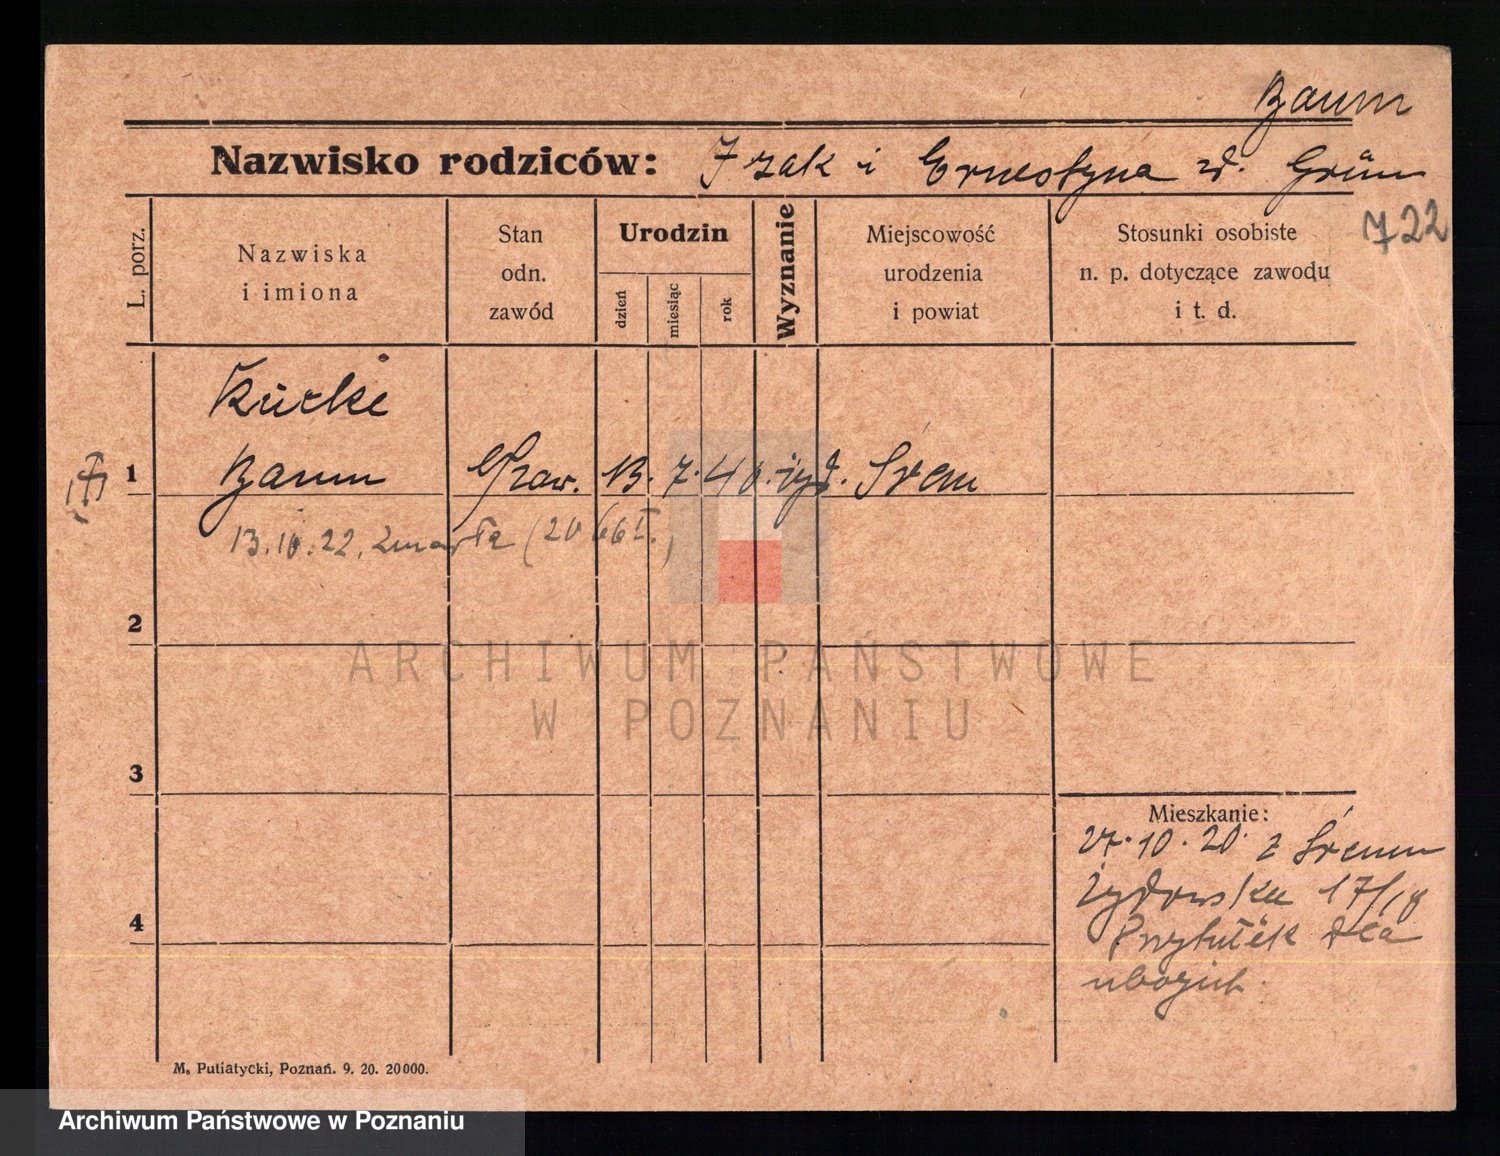 Baum
Nazwisko rodziców: Izak i Ernestyna zd. Grün
722
L. porz.
Nazwiska
i imiona
Stan
odn.
zawód
Urodzin
dzień
miesiąc
rok
Wyznanie
Miejscowość
urodzenia
i powiat
Stosunki osobiste
n. p. dotyczące zawodu
i t. d.
1 Baum 13. 7. 40. żyd. Śrem
13.10.22. zmarła
2
3
4
Mieszkanie:
27.10.20. z Śremu
Żydowska 17/18
Przytułek dla
ubogich.
M. Putiatycki, Poznań. 9. 20. 20000.
ARCHIWUM PAŃSTWOWE
W POZNANIU
Archiwum Państwowe w Poznaniu